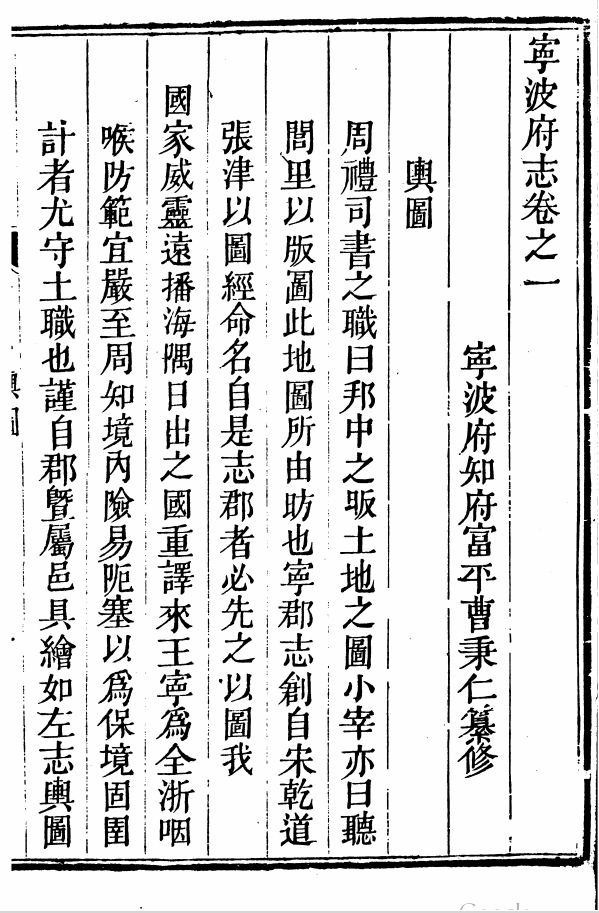 寧波府志卷之一
寧波府知府富平曹秉仁纂修
輿圖
周禮司書之職曰邦中之版土地之圖小宰亦曰聽
閭里以版圖此地圖所由昉也寧郡志創自宋乾道
張津以圖經命名自是志郡者必先之以圖我
國家威靈遠播海隅日出之國重譯來王寧爲全浙咽
喉防範宜嚴至周知境內險易阨塞以爲保境固圉
計者尤守土職也謹自郡曁屬邑具繪如左志輿圖
輿圖